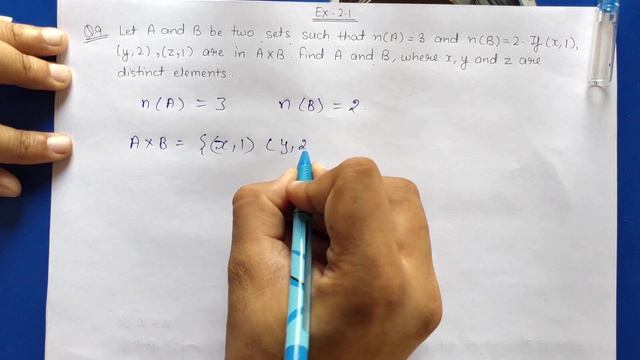 Ex-2.1
Q9 Let A and B be two sets such that n(A)=3 and n(B)=2. If (x,1),
(y,2), (z,1) are in A×B. Find A and B, where x, y and z are
distinct elements.
n(A) = 3 n(B) = 2.
A×B = {(x,1) (y,2